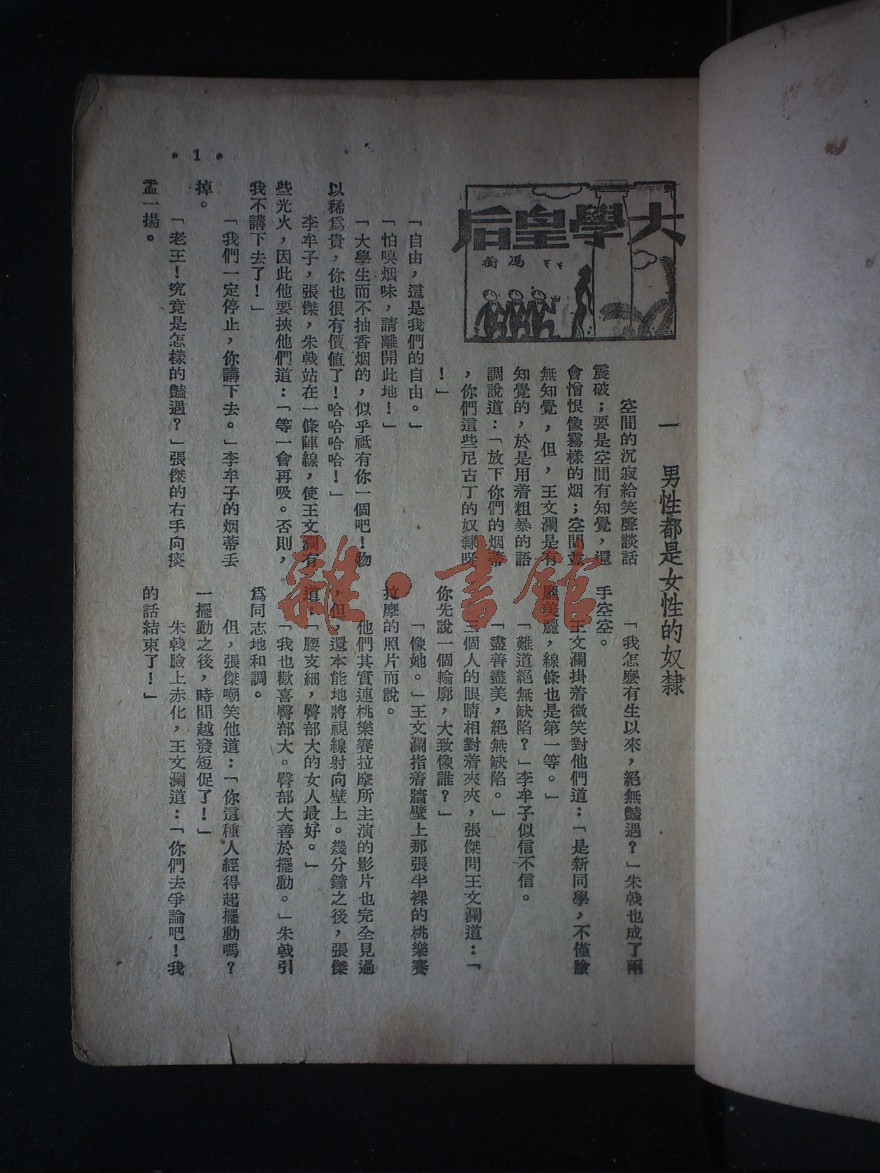 大學皇后
馮
一　男性都是女性的奴隸
空間的沉寂給笑聲談話
震破；要是空間有知覺，還
會憎恨像霧樣的烟；空間並
無知覺，但，王文瀾是有
知覺的，於是用着粗暴的語
調說道：「放下你們的烟蒂
，你們這些尼古丁的奴隸呀
！」
「自由，這是我們的自由。」
「怕嗅烟味，請離開此地！」
「大學生而不抽香烟的，似乎祇有你一個吧！物
以稀爲貴，你也很有價值了！哈哈哈哈！」
李牟子，張傑，朱戟站在一條陣線，使王文瀾有
些光火，因此他要挾他們道：「等一會再吸。否則，
我不講下去了！」
「我們一定停止，你講下去。」李牟子的烟蒂丢
掉。
「老王！究竟是怎樣的豔遇？」張傑的右手向痰
盂一揚。
「我怎麽有生以來，絕無豔遇？」朱戟也成了兩
手空空。
王文瀾掛着微笑對他們道：「是新同學，不僅臉
美麗，線條也是第一等。」
「難道絕無缺陷？」李牟子似信不信。
「盡善盡美，絕無缺陷。」
三個人的眼睛相對着夾夾，張傑問王文瀾道：「
你先說一個輪廓，大致像誰？」
「像她。」王文瀾指着牆壁上那張半裸的桃樂賽
拉摩的照片而說。
他們其實連桃樂賽拉摩所主演的影片也完全見過
，但，還本能地將視線射向壁上。幾分鐘之後，張傑
道：「腰支細，臀部大的女人最好。」
「我也歡喜臀部大。臀部大善於擺動。」朱戟引
爲同志地和調。
但，張傑嘲笑他道：「你這種人經得起擺動嗎？
一擺動之後，時間越發短促了！」
朱戟臉上赤化，王文瀾道：「你們去爭論吧！我
的話結束了！」
• 1 •
雜·書館